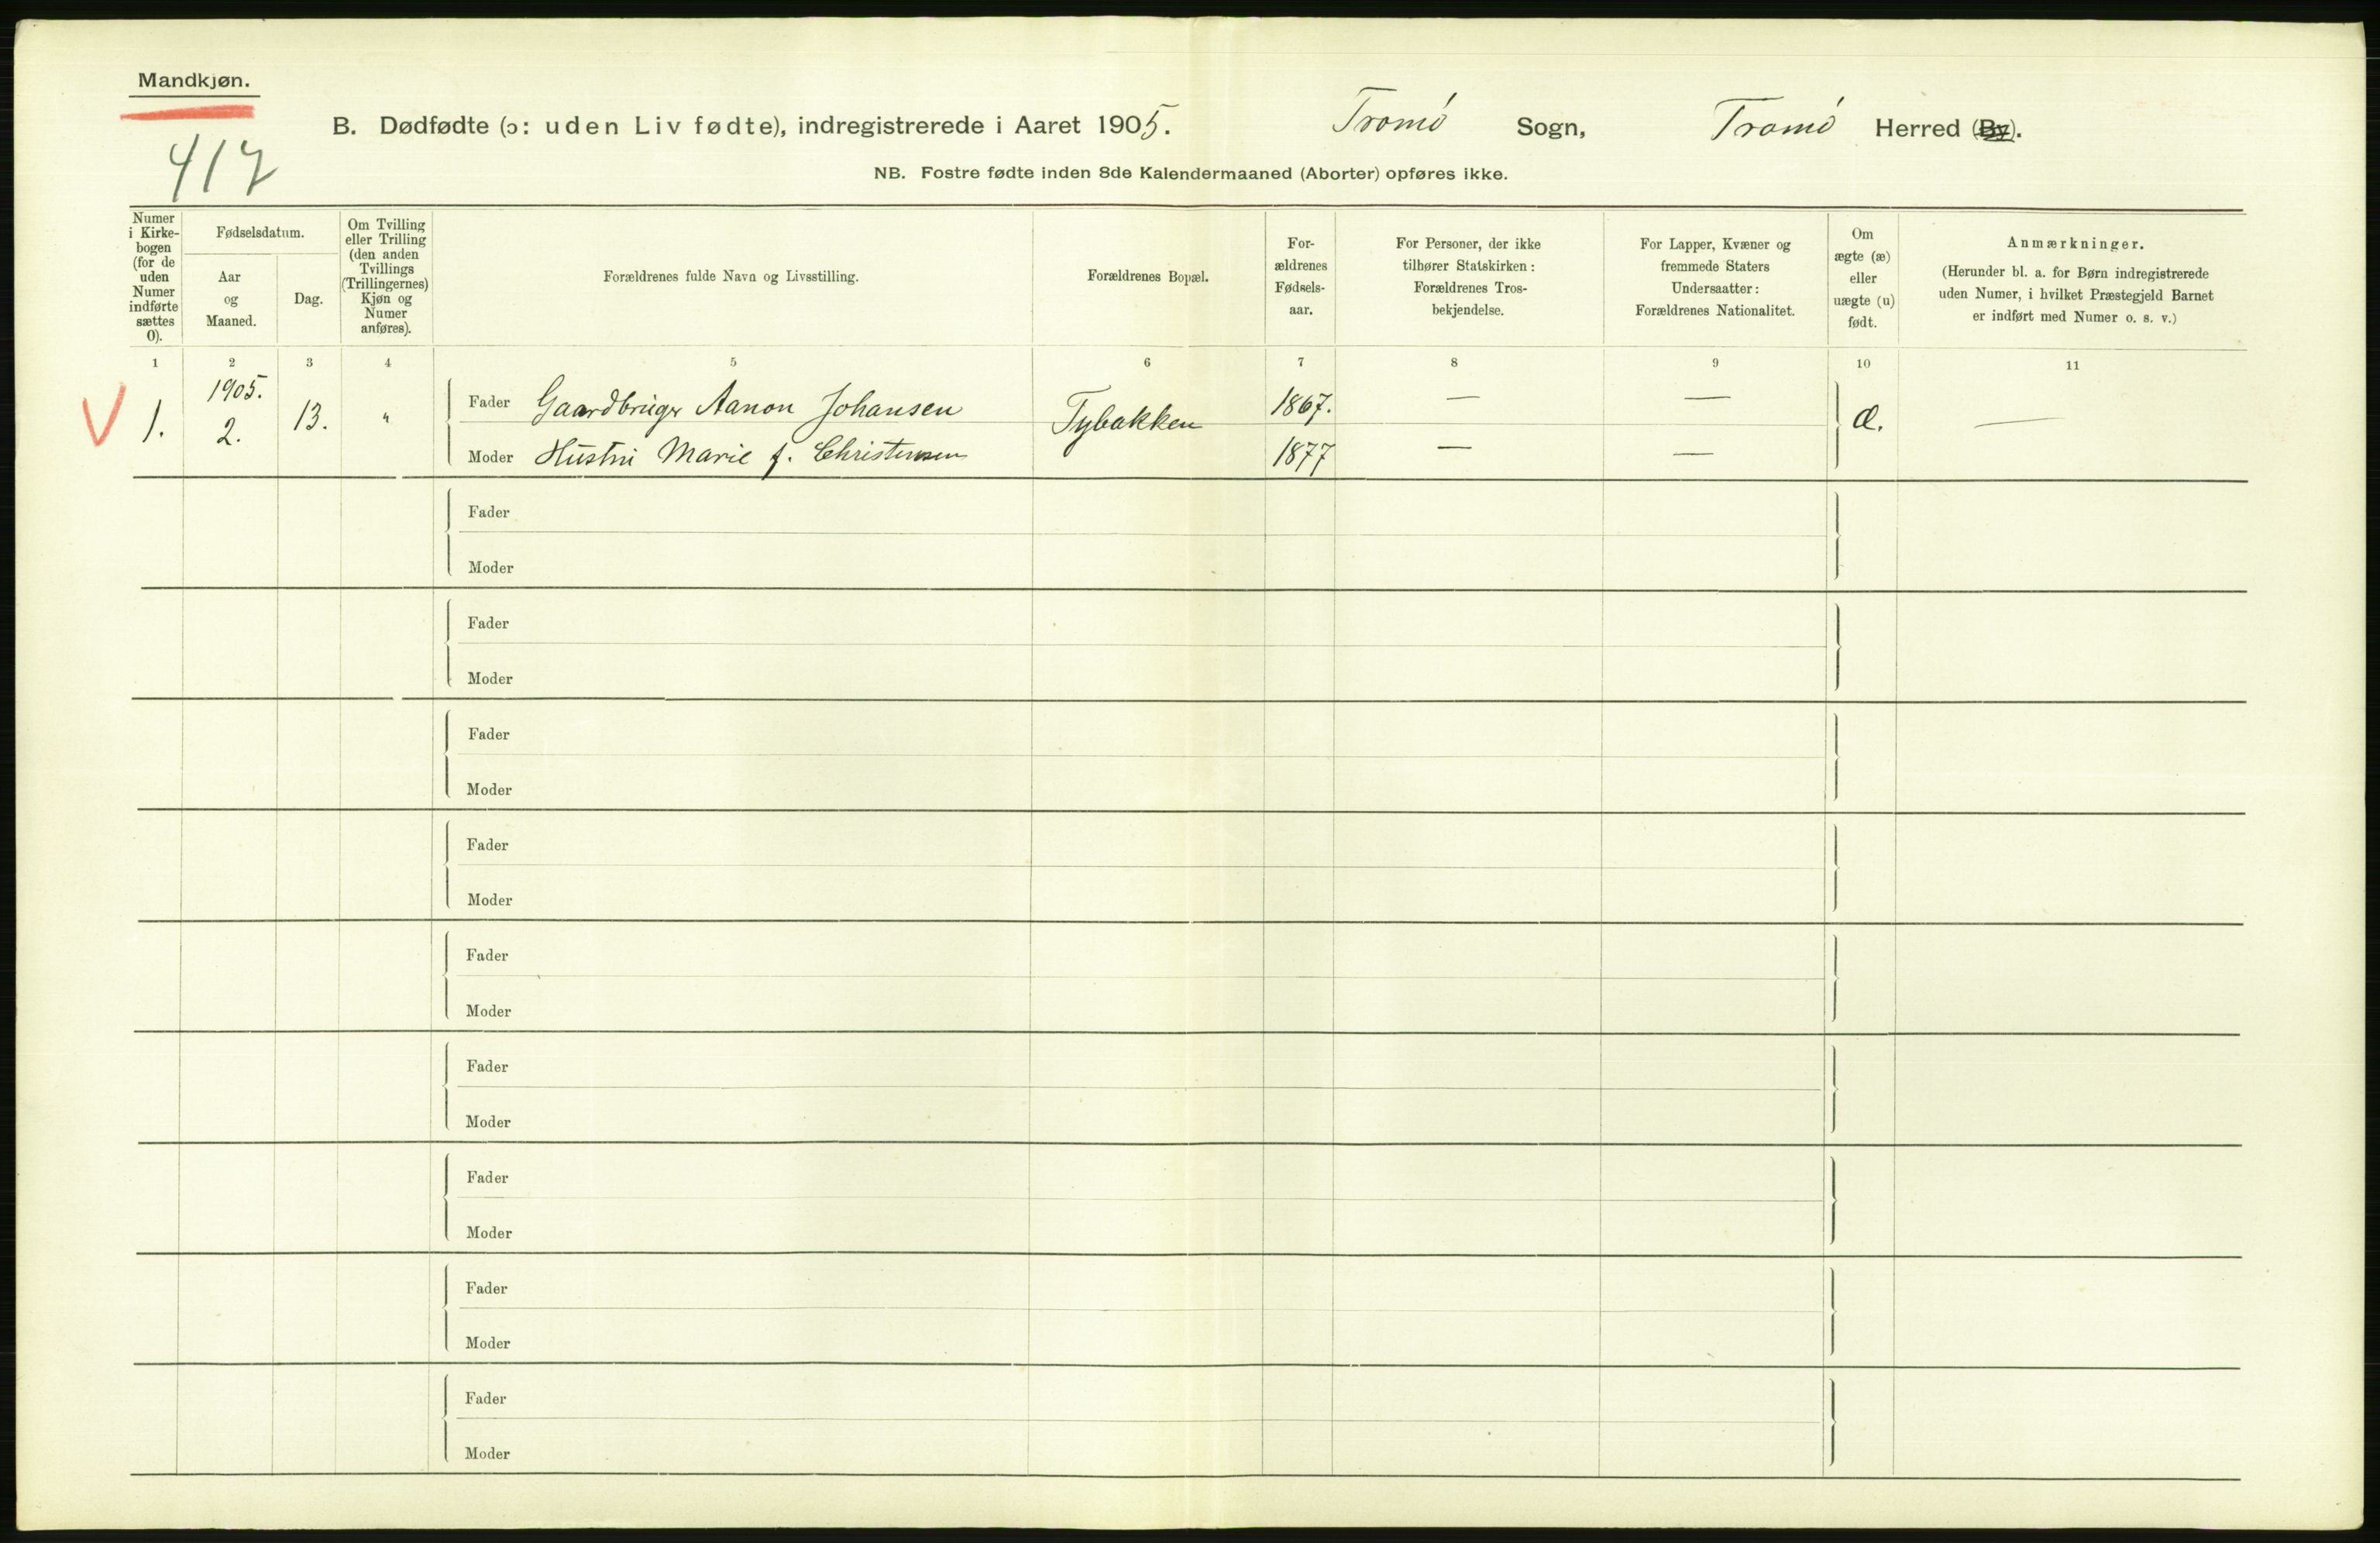 Mandkjøn.
417
B. Dødfødte (ɔ: uden Liv fødte), indregistrerede i Aaret 1905. Tromö Sogn, Tromö Herred (By).
NB. Fostre fødte inden 8de Kalendermaaned (Aborter) opføres ikke.
Numer
i Kirke-
bogen
(for de
uden
Numer
indførte
sættes
0).
Fødselsdatum.
Aar
og
Maaned.
Dag.
Om Tvilling
eller Trilling
(den anden
Tvillings
(Trillingernes)
Kjøn og
Numer
anføres).
Forældrenes fulde Navn og Livsstilling.
Forældrenes Bopæl.
For-
ældrenes
Fødsels-
aar.
For Personer, der ikke
tilhører Statskirken:
Forældrenes Tros-
bekjendelse.
For Lapper, Kvæner og
fremmede Staters
Undersaatter:
Forældrenes Nationalitet.
Om
ægte (æ)
eller
uægte (u)
født.
Anmærkninger.
(Herunder bl. a. for Børn indregistrerede
uden Numer, i hvilket Præstegjeld Barnet
er indført med Numer o. s. v.)
1 2 3 4 5 6 7 8 9 10 11
V 1. 1905. 2. 13. "
Fader Gaardbruger Aanon Johansen Tybakken 1867. — — æ. —
Moder Hustru Marie f. Christensen 1877 — —
Fader
Moder
Fader
Moder
Fader
Moder
Fader
Moder
Fader
Moder
Fader
Moder
Fader
Moder
Fader
Moder
Fader
Moder